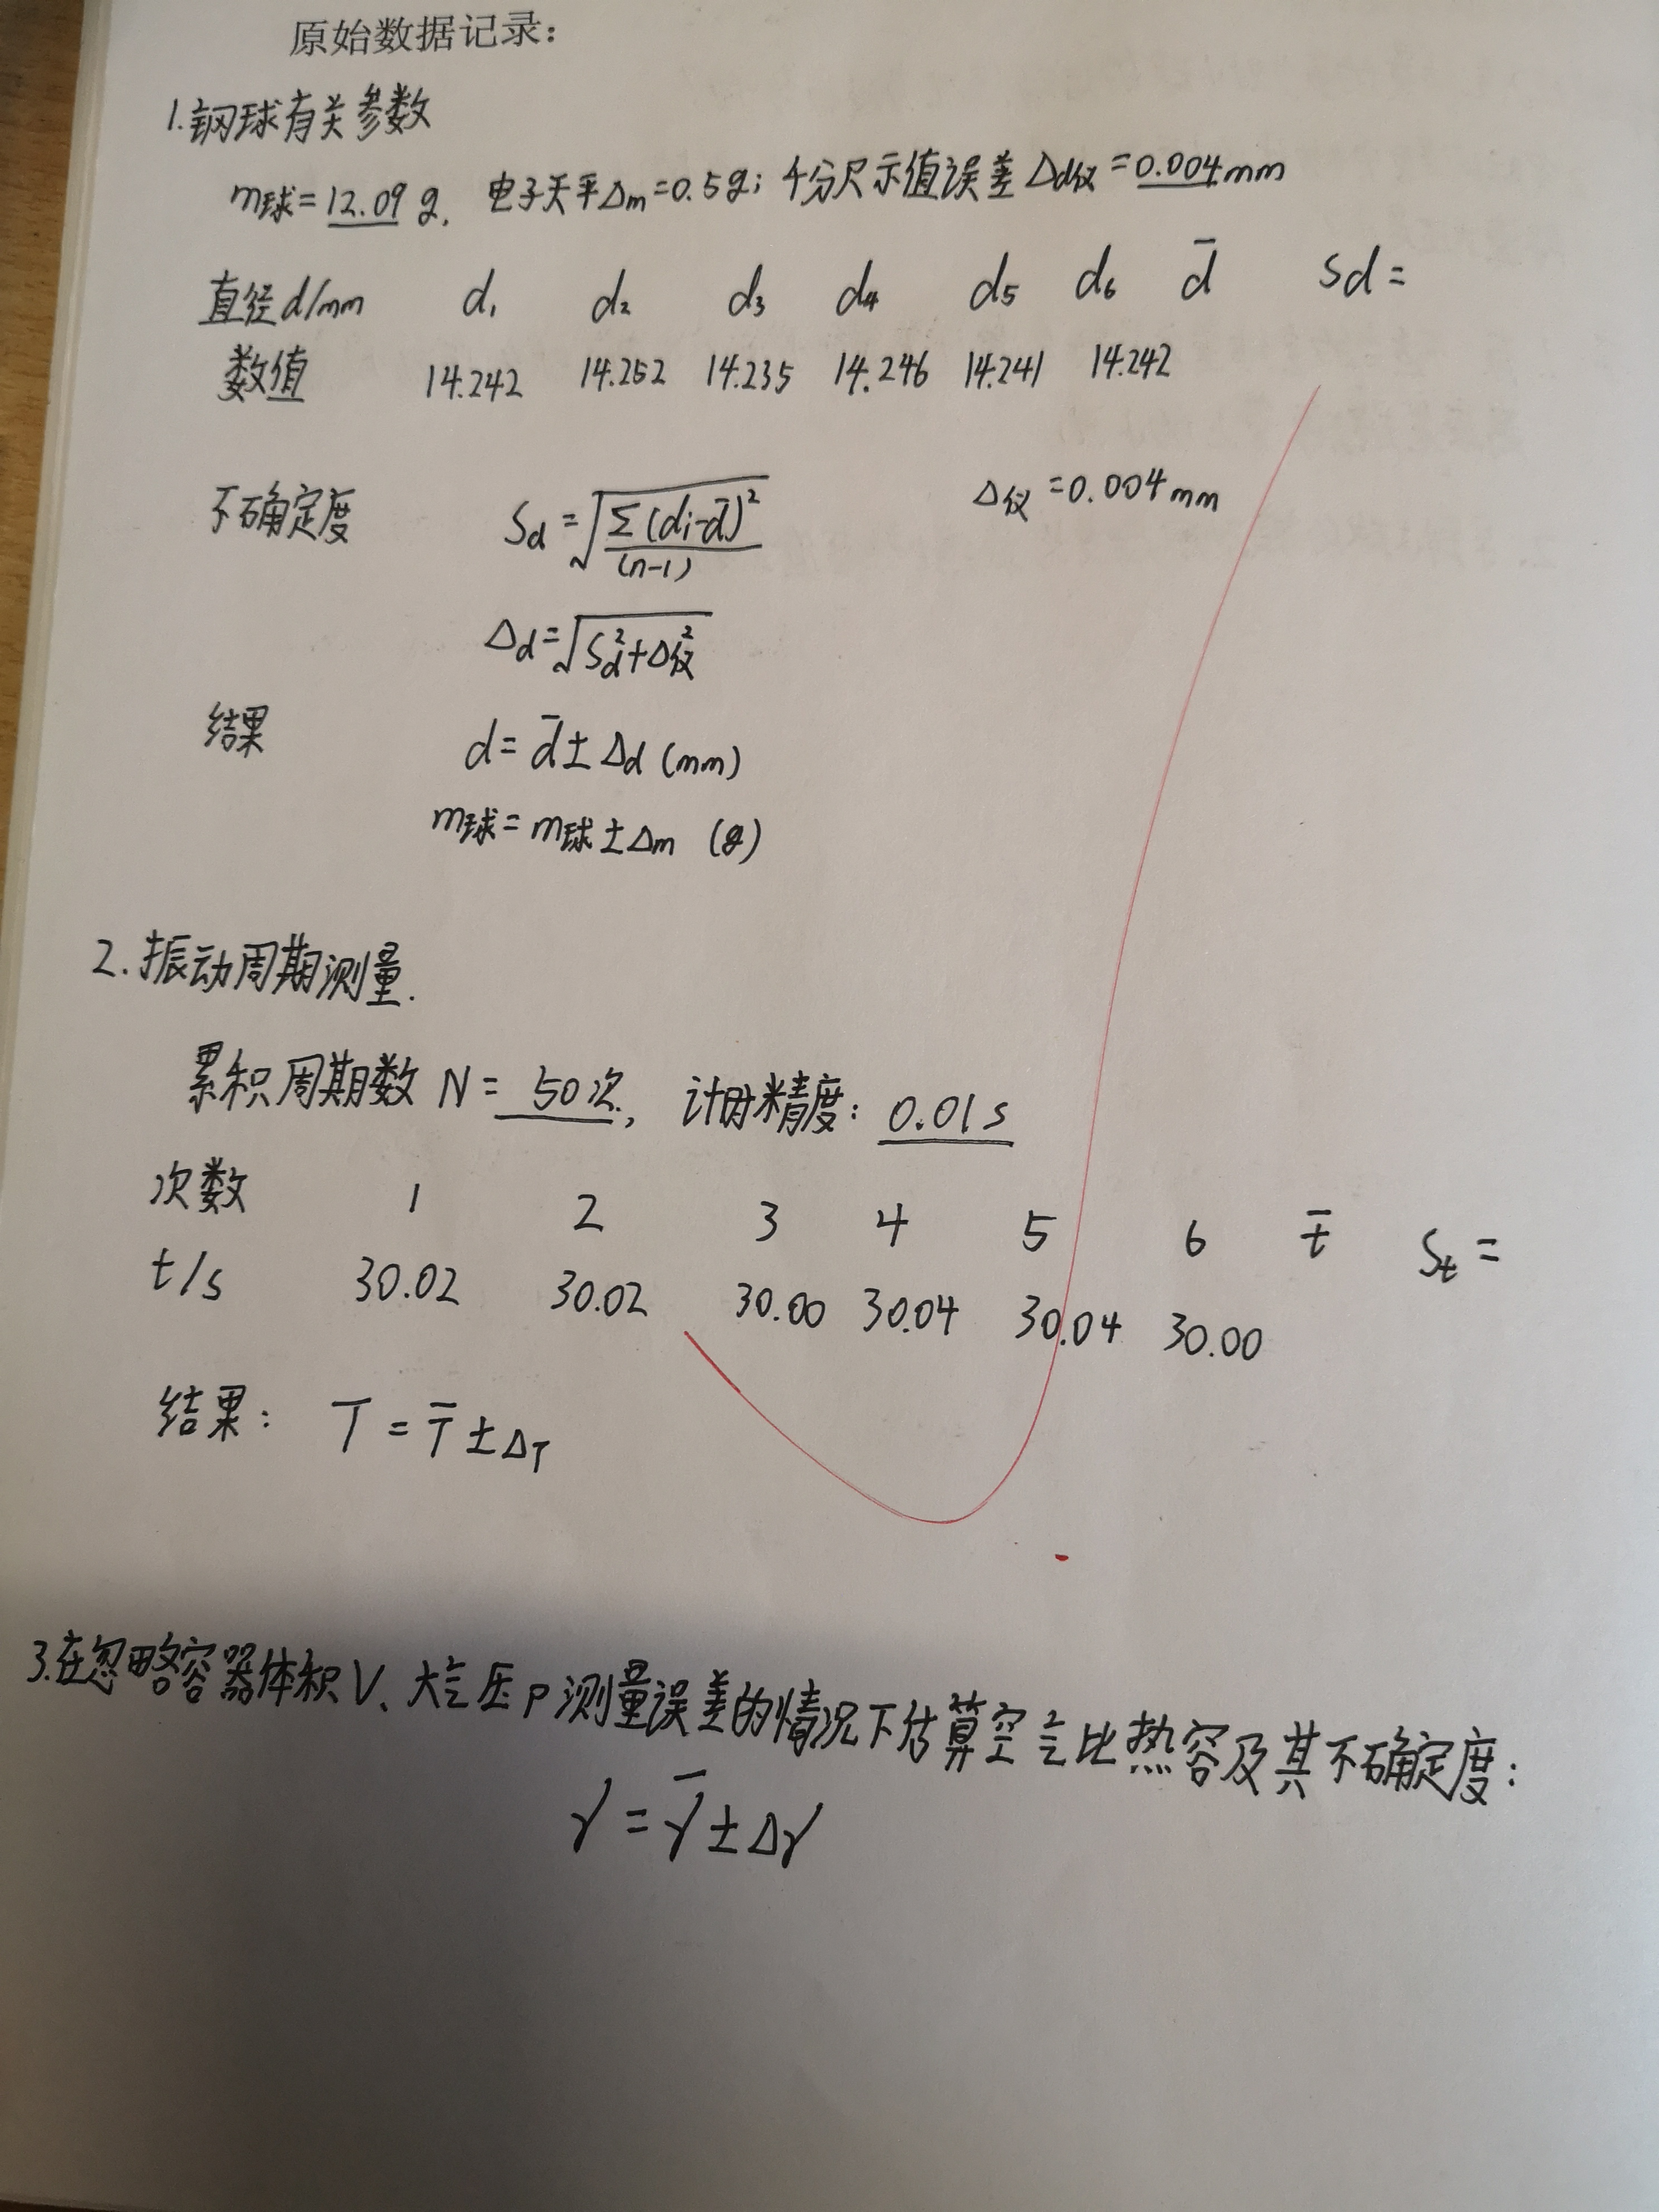 原始数据记录：
1.钢球有关参数
m球=12.09 g, 电子天平Δm=0.5g; 千分尺示值误差Δd仪=0.004mm
直径d/mm d₁ d₂ d₃ d₄ d₅ d₆ d̄ Sd=
数值 14.242 14.252 14.235 14.246 14.241 14.242
不确定度 Sd=√(Σ(di-d̄)²/(n-1)) Δ仪=0.004mm
Δd=√(Sd²+Δ仪²)
结果 d=d̄±Δd (mm)
m球=m球±Δm (g)
2.振动周期测量.
累积周期数 N=50次, 计时精度: 0.01s
次数 1 2 3 4 5 6 t̄ St=
t/s 30.02 30.02 30.00 30.04 30.04 30.00
结果: T=T̄±ΔT
3.在忽略容器体积V、大气压P测量误差的情况下估算空气比热容及其不确定度:
γ=γ̄±Δγ